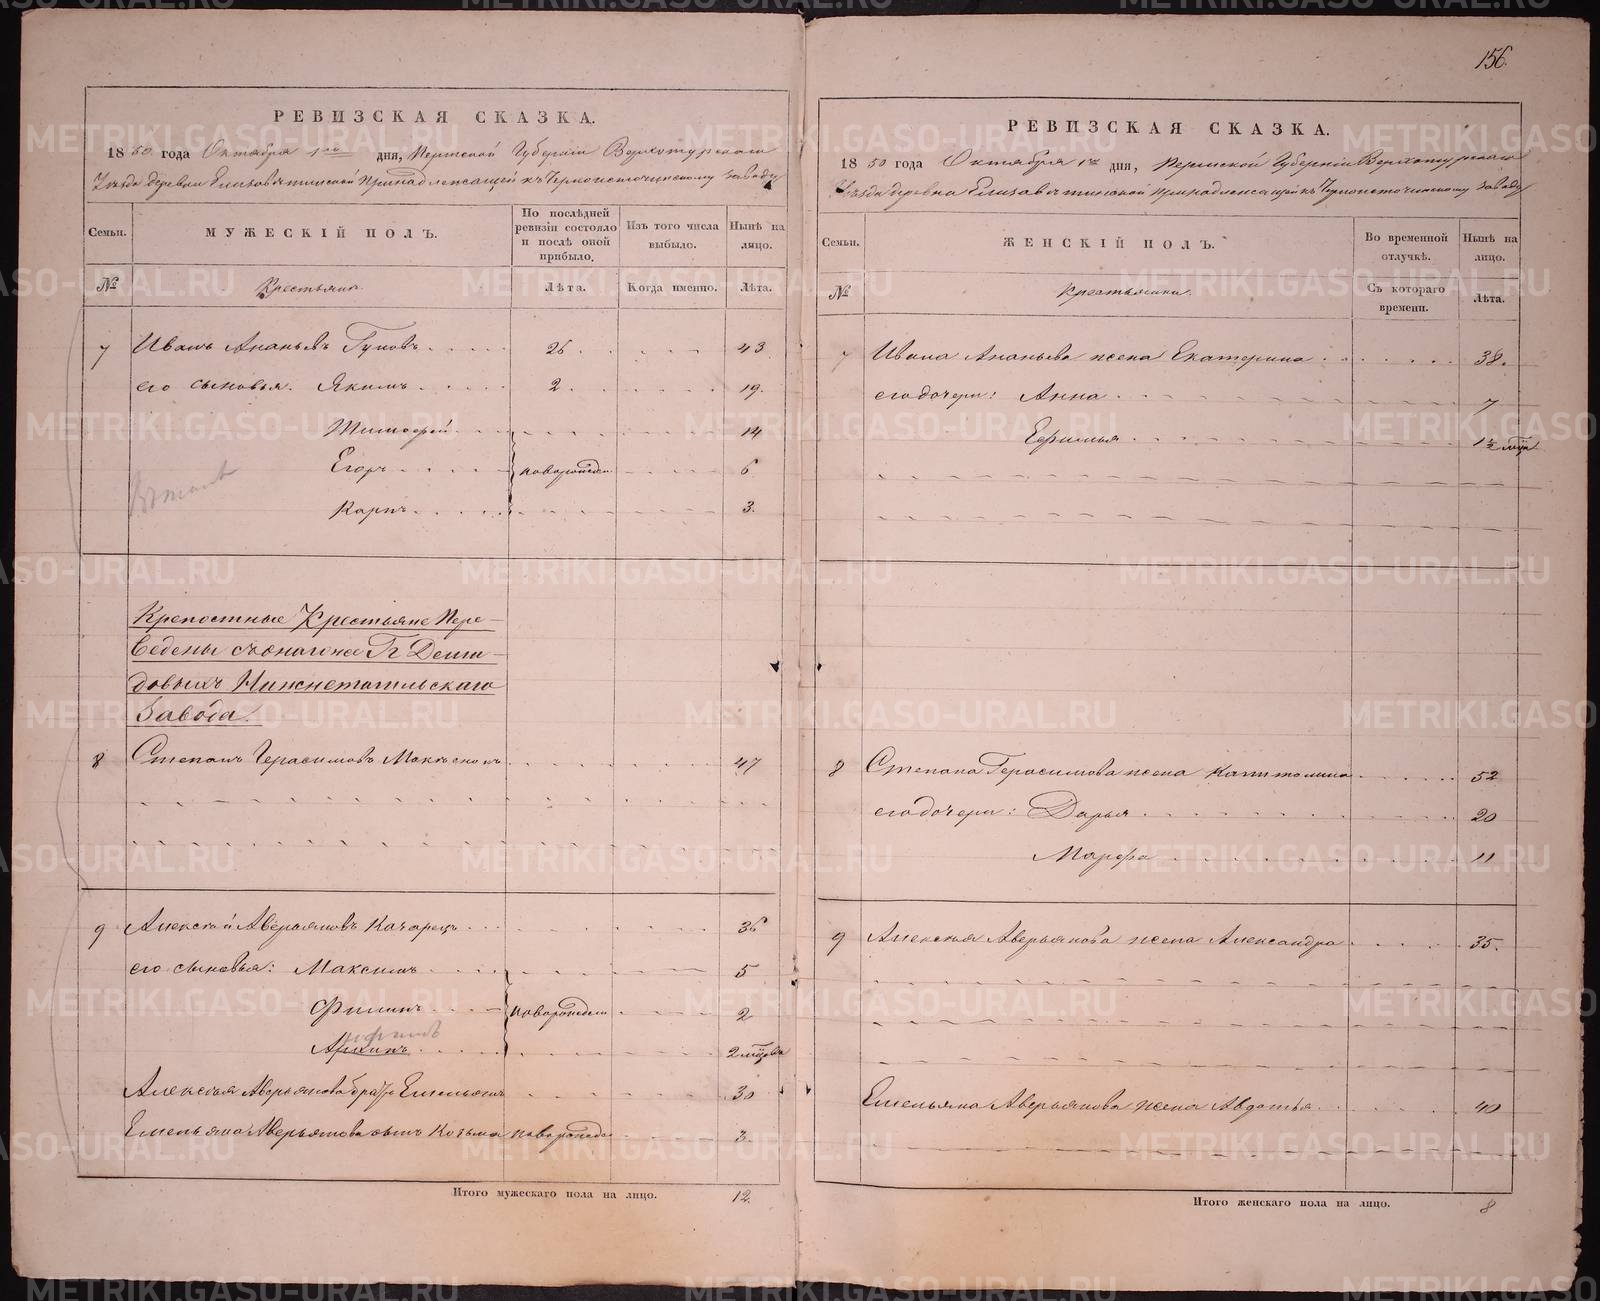 156.
РЕВИЗСКАЯ СКАЗКА.
1850 года Октября 1го дня, Пермской Губернии Верхотурскаго
Уезда деревни Елизаветинской принадлежащей къ Черноисточинскому заводу
Семьи. МУЖЕСКІЙ ПОЛЪ. По послѣдней ревизіи состояло и послѣ оной прибыло. Изъ того числа выбыло. Нынѣ на лицо.
№ Крестьяне. Лѣта. Когда именно. Лѣта.
7 Иванъ Ананьевъ 26 43
его сыновья: Якимъ 2 19.
Тимофей 14
Егоръ новорожден 6
Карпъ 3.
Крепостные Крестьяне Пере-
ведены съ онаго же Гг Деми-
довыхъ Нижнетагильскаго
Завода.
8 Степанъ Герасимовъ 47
9 Алексей Аверьяновъ 36
его сыновья: Максимъ 5
Филипъ новорожден 2
Архипъ 2 мцовъ
Алексея Аверьянова братъ Емельянъ 30
Емельяна Аверьянова сынъ Козьма новорожде 3.
Итого мужескаго пола на лицо. 12.
РЕВИЗСКАЯ СКАЗКА.
1850 года Октября 1го дня, Пермской Губерніи Верхотурскаго
Уезда деревни Елизаветинской принадлежащей къ Черноисточинскому заводу
Семьи. ЖЕНСКІЙ ПОЛЪ. Во временной отлучкѣ. Нынѣ на лицо.
№ Крестьянки. Съ котораго времени. Лѣта.
7 Ивана Ананьева жена Екатерина 38.
его дочери: Анна 7
Ефимья
8 Степана Герасимова жена Капитолина 52
его дочери: Дарья 20
Марфа 11
9 Алексея Аверьянова жена Александра 35.
Емельяна Аверьянова жена Авдотья 40
Итого женскаго пола на лицо. 8
METRIKI.GASO-URAL.RU